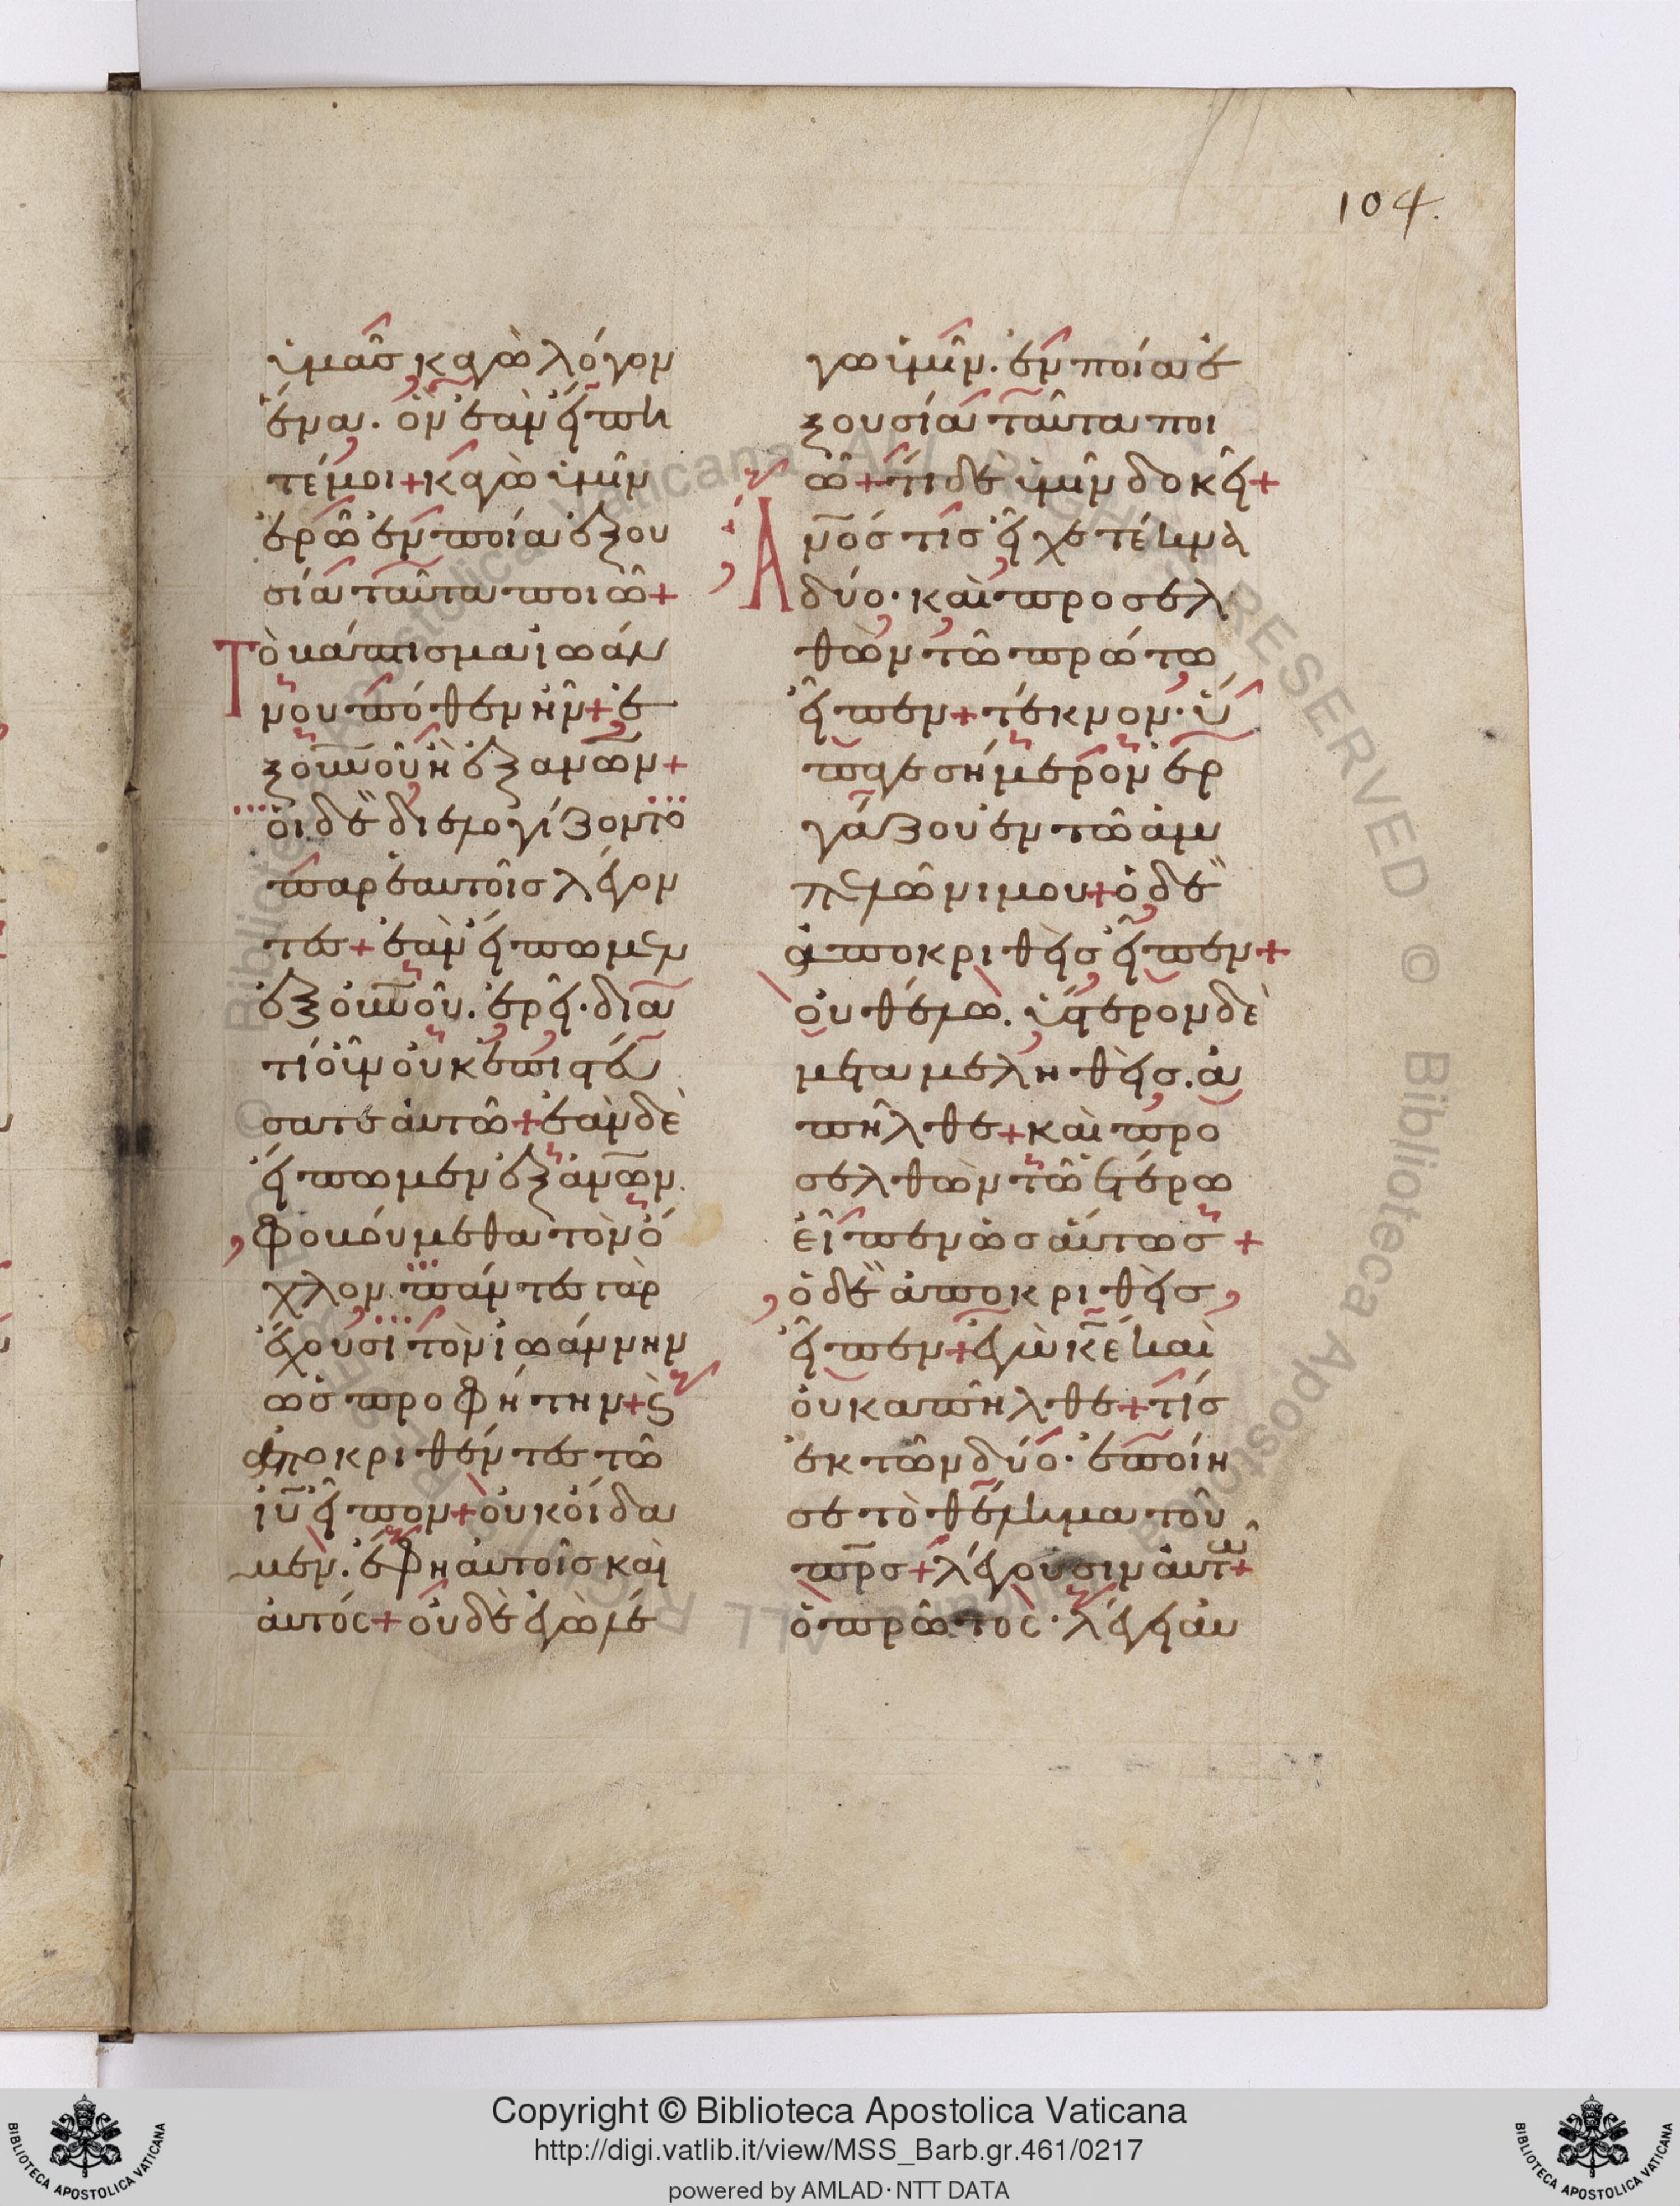 104.
ὑμᾶς κἀγὼ λόγον
ἕνα. ὃν ἐὰν εἴπη
τέ μοι + κἀγὼ ὑμῖν
ἐρῶ ἐν ποία ἐξου
σία ταῦτα ποιῶ +
Τὸ βάπτισμα ἰωάν
νου πόθεν ἦν + ἐ
ξ οὐνοῦ ἢ ἐξ ανων +
οἱ δὲ διελογίζοντο
παρ ἑαυτοῖς λέγον
τες + ἐὰν εἴπωμεν
ἐξ οὐνοῦ. ἐρεῖ. διὰ
τί οὖν οὐκ ἐπιστεύ
σατε αὐτῶ + ἐὰν δὲ
εἴπωμεν ἐξ ἀνων.
φοβούμεθα τὸν ὄ
χλον. πάντες γὰρ
ἔχουσι τὸν ἰωάννην
ὡς προφήτην + ϛ
ἀποκριθέντες τῶ
ιυ εἶπον + οὐκ οἴδα
μεν. ἔφη αὐτοῖς καὶ
αὐτός + οὐδὲ ἐγὼ λέ
γω ὑμῖν. ἐν ποία ἐ
ξουσία ταῦτα ποι
ῶ + τί δὲ ὑμῖν δοκεῖ +
Α
νός τις εἶχε τέκνα
δύο. καὶ προσελ
θὼν τῶ πρώτω
εἶπεν + τέκνον. ὕ
παγε σήμερον ἐρ
γάζου ἐν τῶ ἀμ
πελῶνι μου + ὁ δὲ
ἀποκριθεὶς εἶπεν +
οὐ θέλω. ὕστερον δὲ
μεταμεληθεὶς. ἀ
πῆλθε + καὶ προ
σελθὼν τῶ ἑτέρω
εἶπεν ὡσαύτως +
ὁ δὲ ἀποκριθεὶς
εἶπεν + ἐγὼ κε καὶ
οὐκ ἀπῆλθε + τίς
ἐκ τῶν δύο. ἐποίη
σε τὸ θέλημα τοῦ
πρς + λέγουσιν αὐτῶ +
ὁ πρῶτος. λέγει αὐ
Copyright © Biblioteca Apostolica Vaticana
http://digi.vatlib.it/view/MSS_Barb.gr.461/0217
powered by AMLAD·NTT DATA
BIBLIOTECA APOSTOLICA VATICANA
BIBLIOTECA APOSTOLICA VATICANA